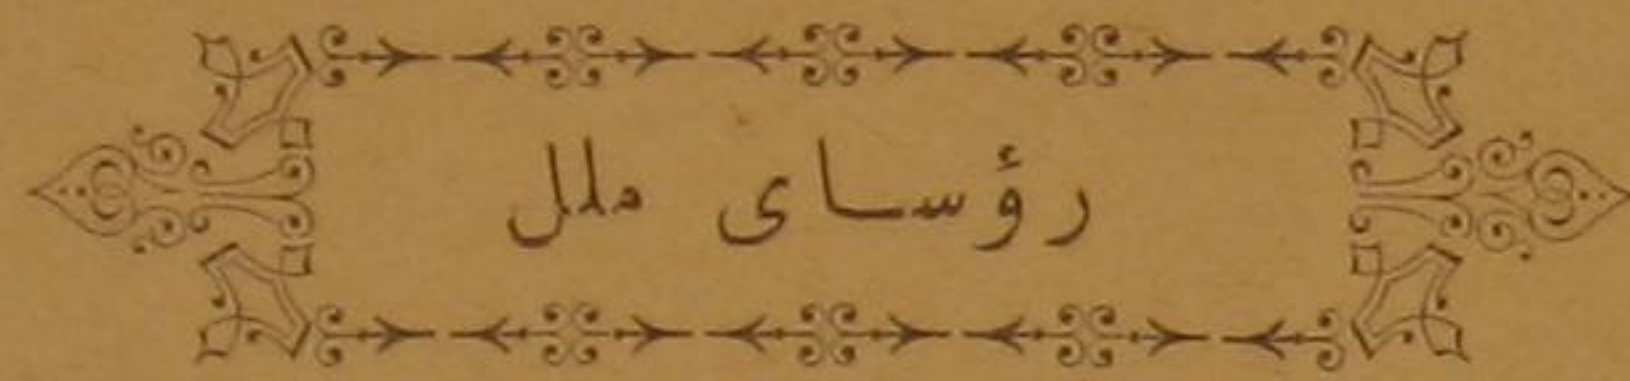 رؤسای ملل